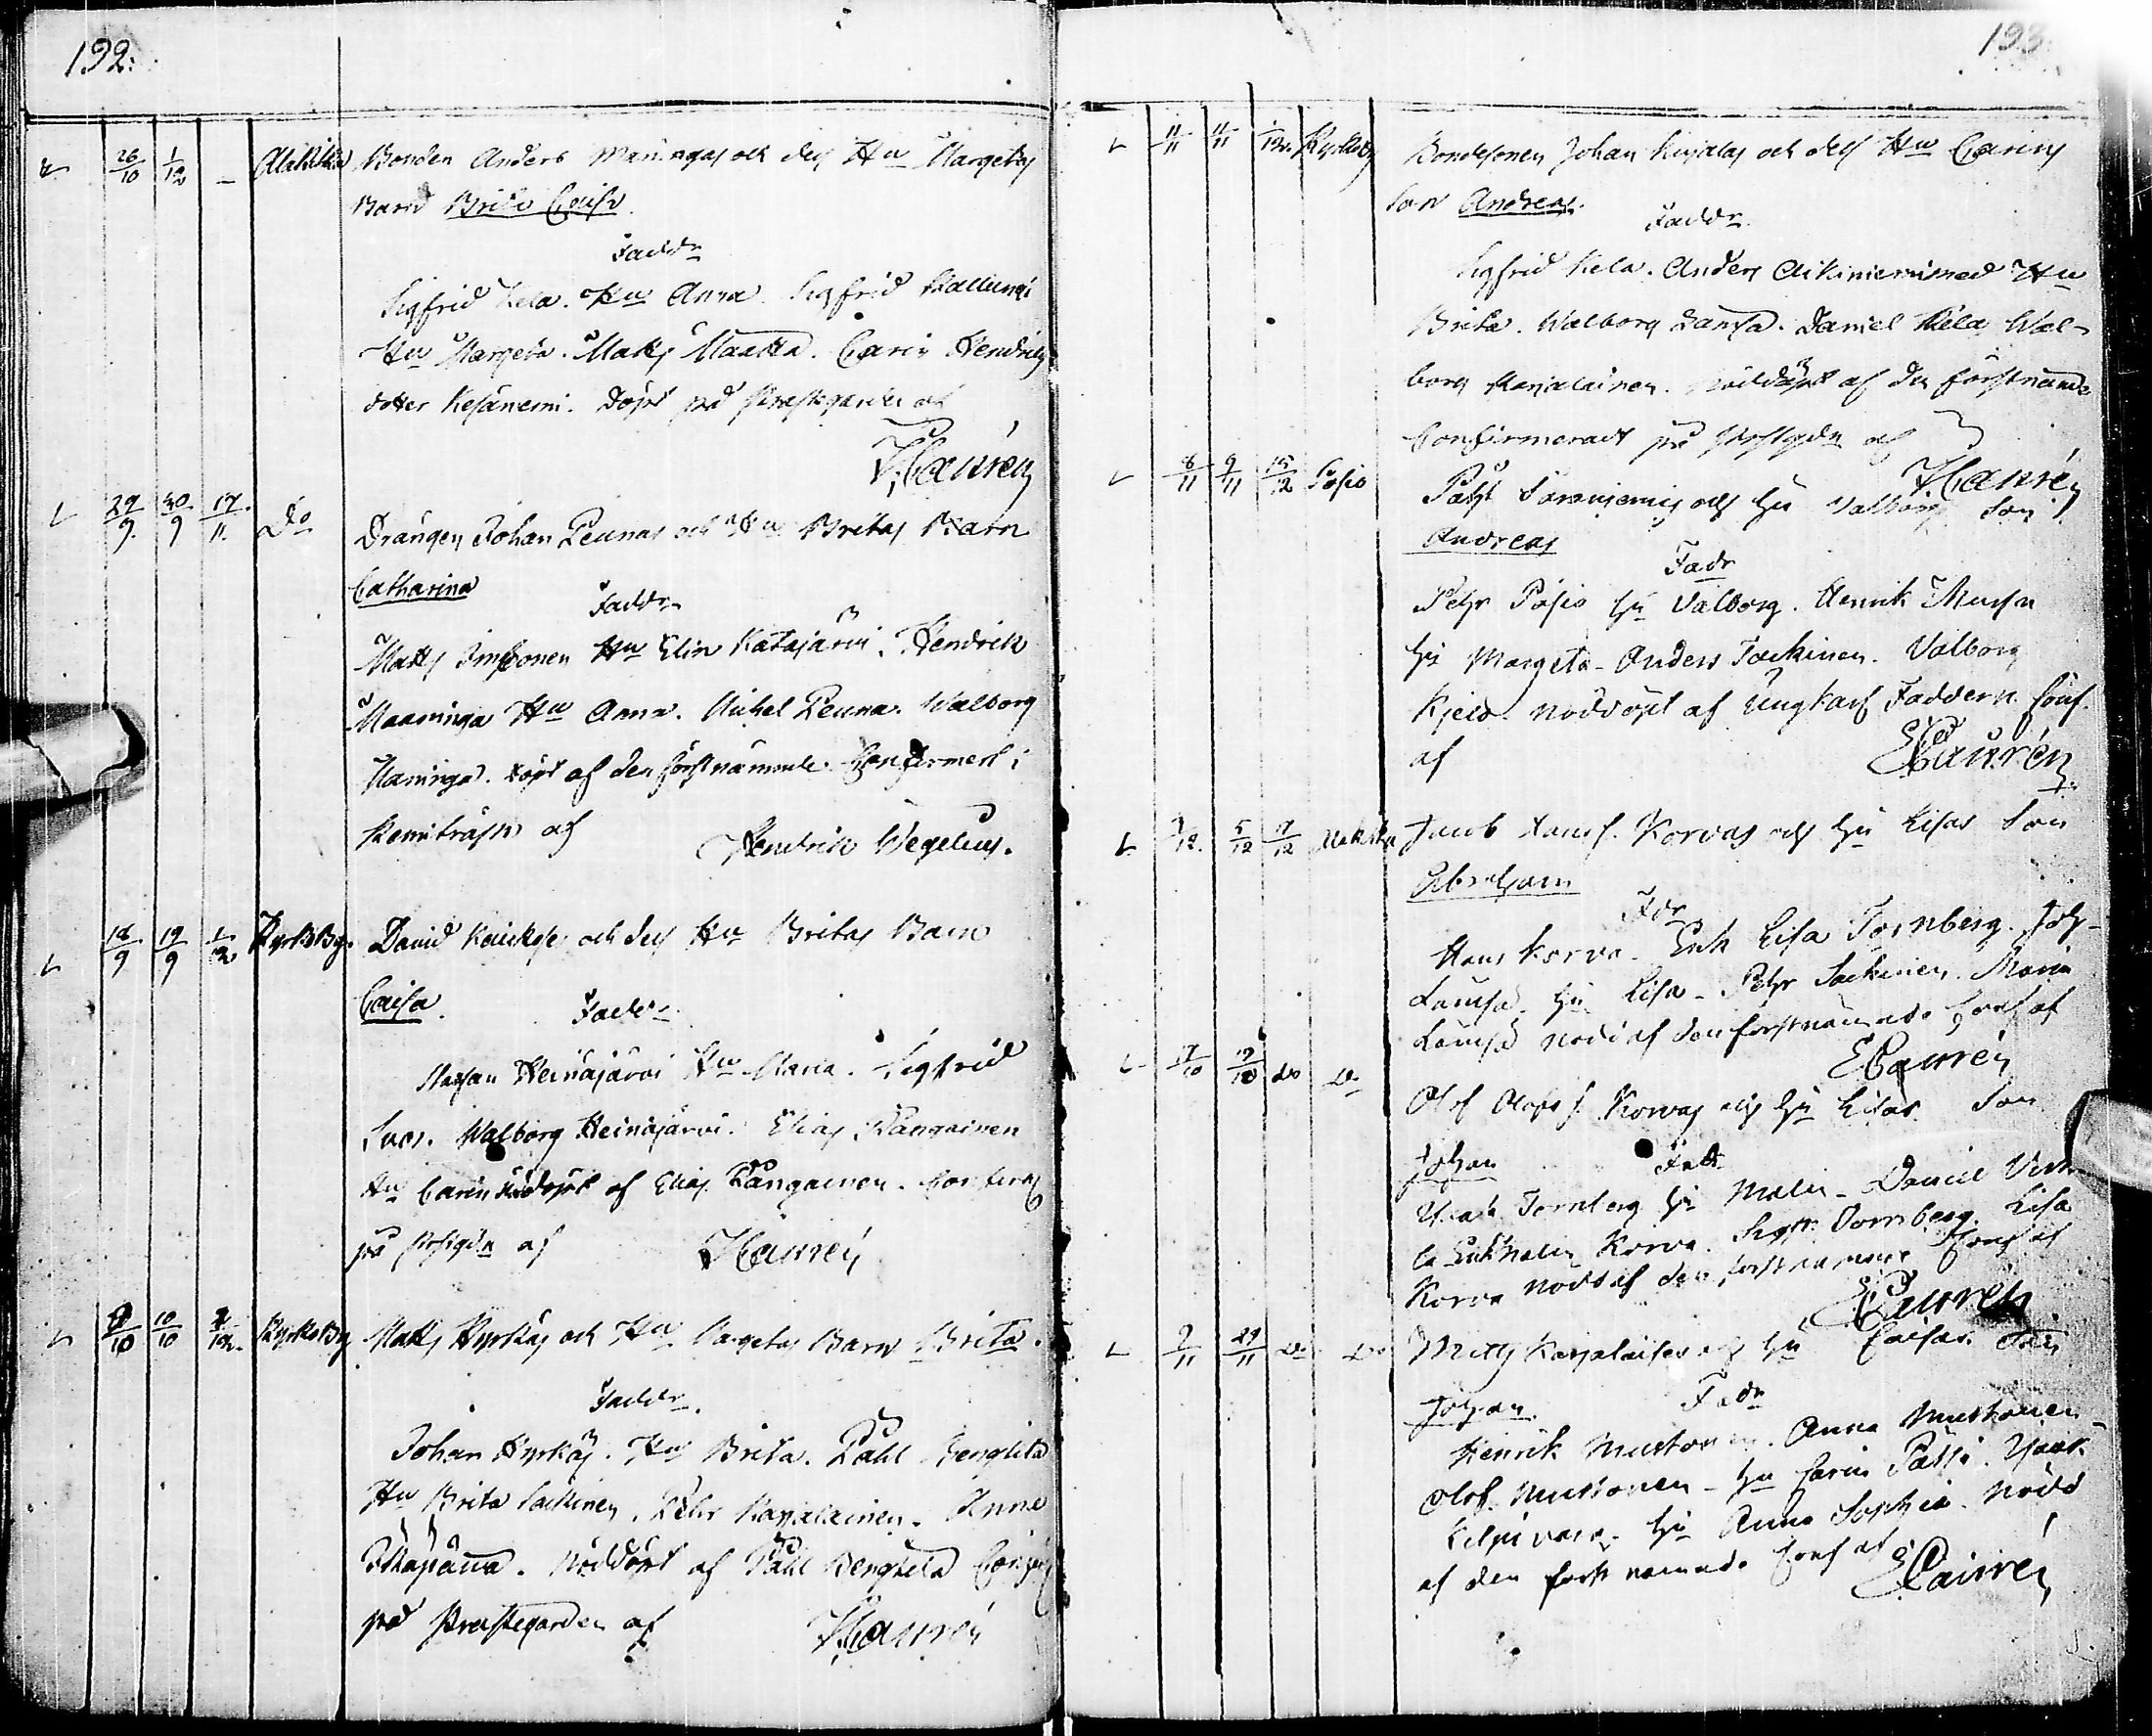 192.
26/10 1/12 - Alakitka Bonden Anders Maningas och dess Hu Margetas
Barn Brita Caisa
Faddr
Sigfrid Kela. Hu Anna. Sigfrid Kallungi
Hu Margeta. Matts Maatta. Carin Hendrics
dotter Kesäniemi. Döpt på Prestgården af
H Caurén
29/9 30/9 17/11 Do Drängen Johan Leunas och Hu Britas Barn
Catharina
Faddr
Matts Imponen Hu Elin Katajärvi. Hendrik
Maaninga Hu Anna. Michel Leuna. Walborg
Maninga. Döpt af den förstnämnde. Confirmert i
Kemiträsk af Hendrik Wegelius.
18/9 19/9 1/12 KyrkBy. David och dess Hu Britas Barn
Caisa. Faddr
Staffan Heinäjärvi Hu Maria. Sigfrid
Walborg Heinäjärvi. Elias Kangainen
Hu Carin nöddöpt af Elias Kangainen. Confirm
på Prestgdn af H Caurén
9/10 10/10 1/12 KyrkoBy Matts Hyrkäs och Hu Margetas Barn Brita.
Faddr
Johan Hyrkäs. Hu Brita. Påhl Bengtita
Hu Brita Säckinen. Pehr Karjalainen. Anna
Määttä. Nöddöpt af Påhl Bengtita Confirm
på Prestegården af H Caurén
193.
11/11 11/11 1/12 KyrkoBy Bondesonen Johan Karjalas och dess Hu Carins
Son Andreas.
Faddr
Sigfrid Kela. Anders Aikiniemi med Hu
Brita. Walborg Lämsä. Daniel Kela Wal-
borg Karjalainen. Nöddöpt af den förstnämde
Confirmerat på Prestgdn af
H Caurén
8/11 9/11 15/12 Posio Påhl och Hu Valborgs Son
Andreas
Fadr
Pehr Posio Hu Valborg. Henrik
Hu Margeta - Anders Tackinen. Valborg
nöddöpt af Ungkarl Faddern. Conf.
af E Caurén
4/12 5/12 17/12 Alakitka Jacob Hanss. Korvas och Hu Lisas Son
Abraham
Fdr
Hans Korva. Enk Lisa Tornberg. Joh.
Lämsä Hu Lisa - Pehr Säckinen. Maria
Lämsä nödd af den förstnämnde. Conf af
E Caurén
17/10 19/10 do do Olof Olofs s. Korvas och Hu Lisas Son
Johan Fadr
Tornberg Hu Malin - Daniel
Enk Malin Korva. Tornberg. Lisa
Korva nödd af den förstnämnde Conf af
E Cauren
9/11 29/11 Do Do Matts Karjalaises och Hu Caisas Son
Johan. Fadr
Henrik Mustonen. Anna Mustonen
Olof Mustonen - Hu Carin Pätsi.
Kilpivara. Hu Anna Sophia. Nödd
af den först namnde Conf af
E Cauren